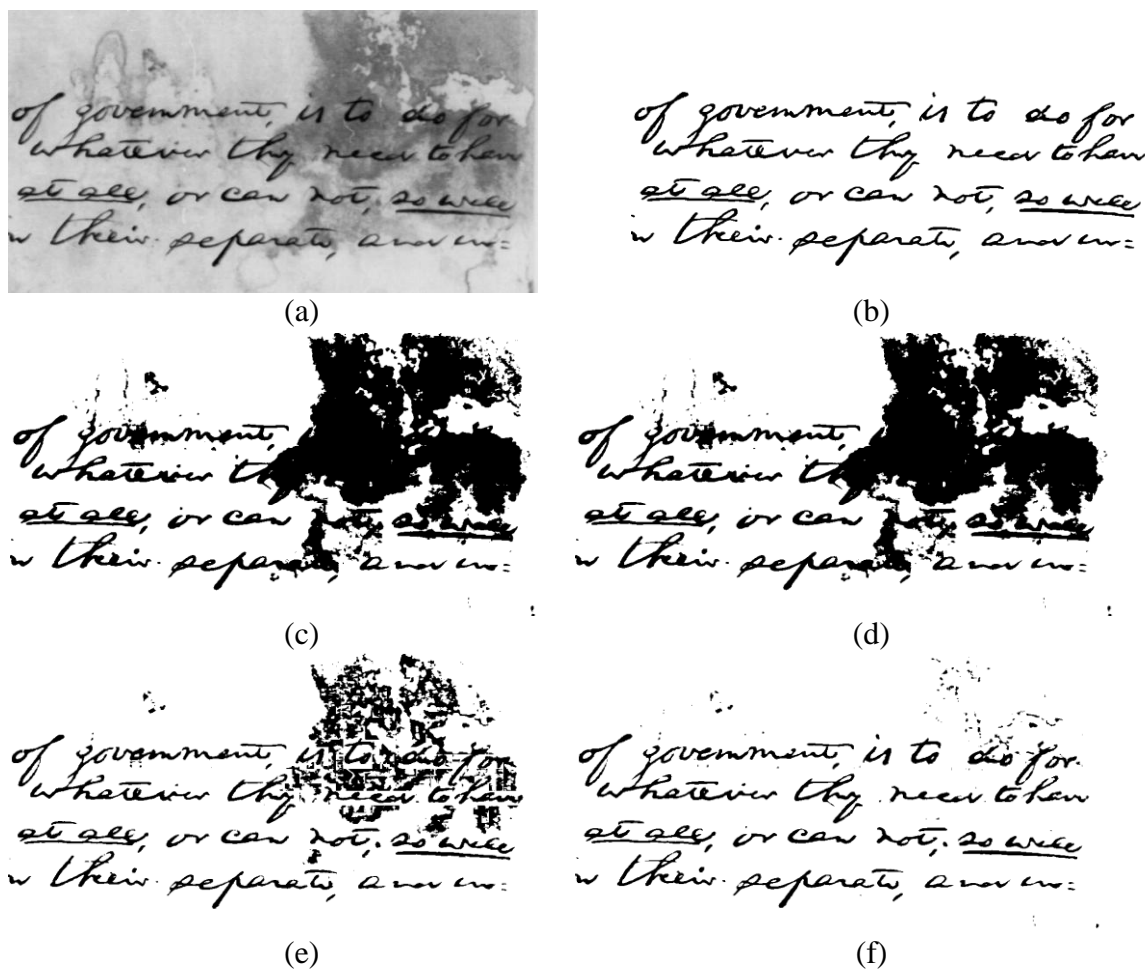 of government, is to do for
whatever they need to have
at all, or can not, so well
n their separate, and in=
(a)
of government, is to do for
whatever they need to have
at all, or can not, so well
n their separate, and in=
(b)
of government,
whatever
at all, or can not, so well
n their separate, and in=
(c)
of government,
whatever
at all, or can not, so well
n their separate, and in=
(d)
of government, is to do for
whatever they need to have
at all, or can not, so well
n their separate, and in=
(e)
of government, is to do for
whatever they need to have
at all, or can not, so well
n their separate, and in=
(f)